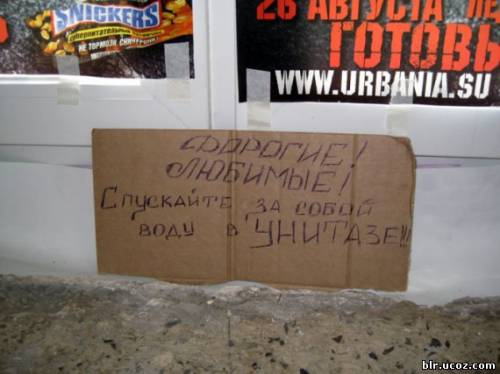 SNICKERS
суперпитательный
НЕ ТОРМОЗИ СНИКЕРСНИ
26 АВГУСТА
ГОТОВЬ
WWW.URBANIA.SU
ДОРОГИЕ!
ЛЮБИМЫЕ!
СПУСКАЙТЕ ЗА СОБОЙ
ВОДУ В УНИТАЗЕ!!!
blr.ucoz.com